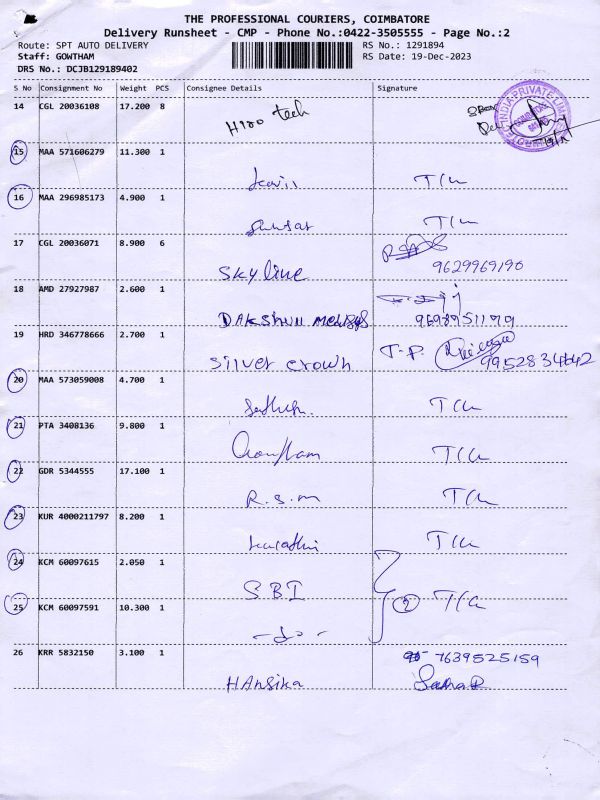 THE PROFESSIONAL COURIERS, COIMBATORE
Delivery Runsheet - CMP - Phone No.:0422-3505555 - Page No.:2
Route: SPT AUTO DELIVERY RS No.: 1291894
Staff: GOWTHAM RS Date: 19-Dec-2023
DRS No.: DCJB129189402
S No Consignment No Weight PCS Consignee Details Signature
14 CGL 20036108 17.200 8
Hiro tech
INDIA PRIVATE LIM
15 MAA 571606279 11.300 1
T/C
16 MAA 296985173 4.900 1
T/C
17 CGL 20036071 8.900 6
Sky line 9629969190
18 AMD 27927987 2.600 1
9698951179
19 HRD 346778666 2.700 1
Silver crown T-P. 9952834642
20 MAA 573059008 4.700 1
T/C
21 PTA 3408136 9.800 1
Gowtham T/C
22 GDR 5344555 17.100 1
R.S.M T/C
23 KUR 4000211797 8.200 1
T/C
24 KCM 60097615 2.050 1
SBI
25 KCM 60097591 10.300 1 2 T/C
-do-
26 KRR 5832150 3.100 1 7639525159
HAnsika